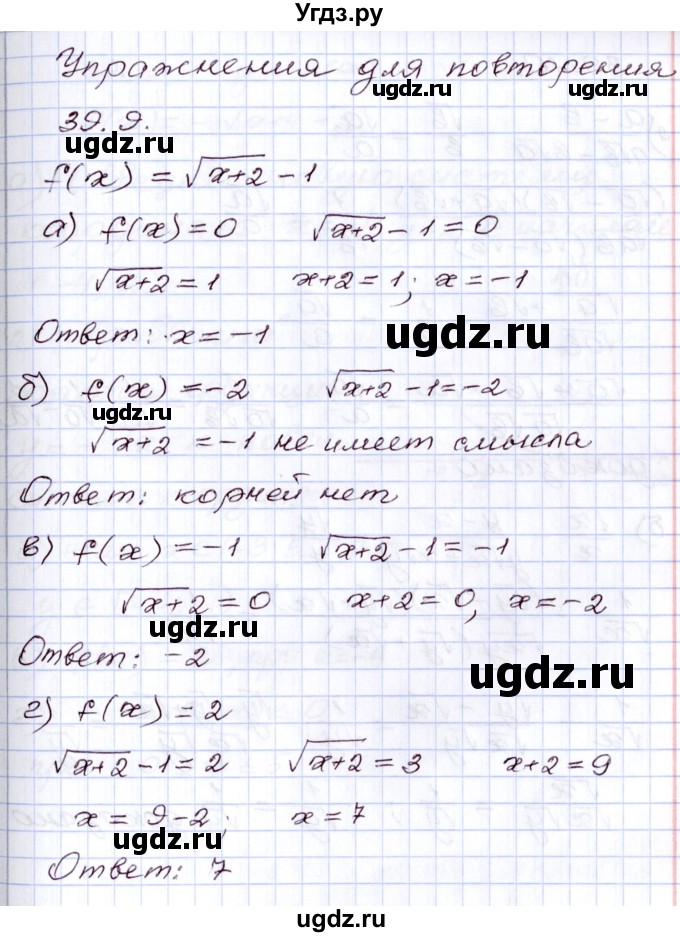 Угдз.ру
Упражнения для повторения
ugdz.ru ugdz.ru
39.9.
ugdz.ru
f(x) = √(x+2) - 1
а) f(x) = 0 √(x+2) - 1 = 0
√(x+2) = 1 x+2 = 1; x = -1
Ответ: x = -1
ugdz.ru
б) f(x) = -2 √(x+2) - 1 = -2
ugdz.ru
√(x+2) = -1 не имеет смысла
Ответ: корней нет
в) f(x) = -1 √(x+2) - 1 = -1
√(x+2) = 0 x+2 = 0, x = -2
ugdz.ru
Ответ: -2
ugdz.ru
г) f(x) = 2
√(x+2) - 1 = 2 √(x+2) = 3 x+2 = 9
x = 9-2; x = 7
ugdz.ru
Ответ: 7
ugdz.ru